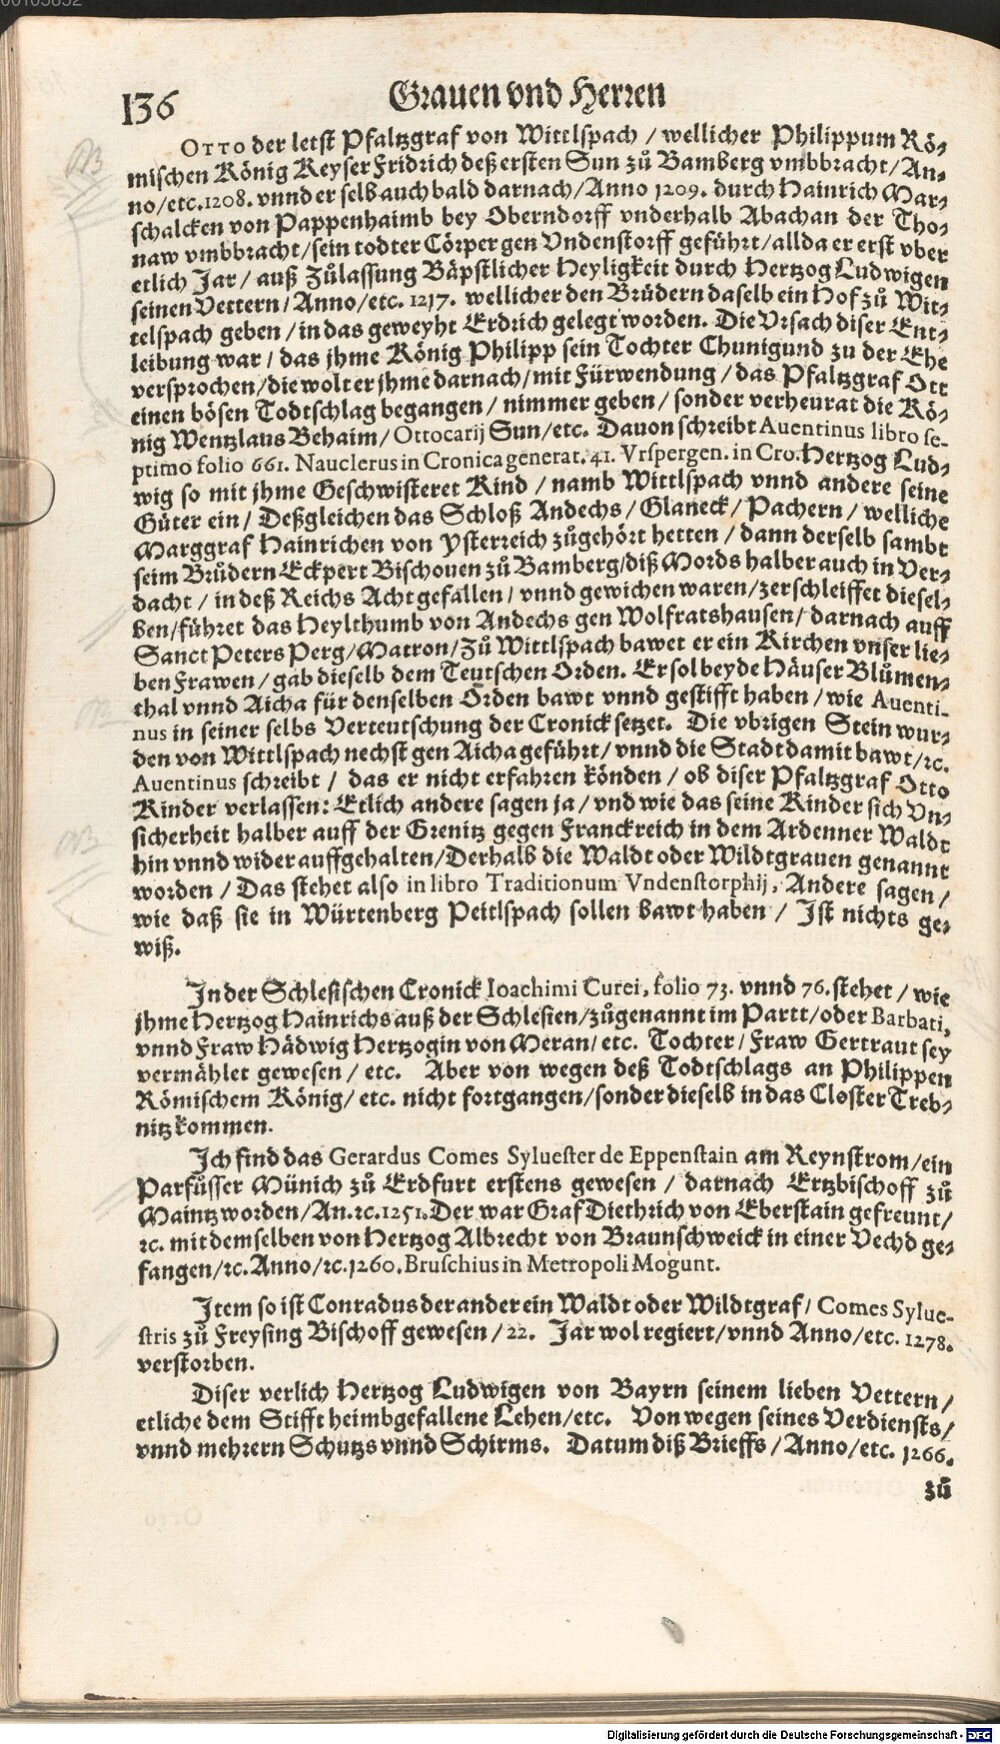 136
Grauen vnd Herren
OTTO der letst Pfaltzgraf von Wittlspach / wellicher Philippum Rö⸗
mischen König Keyser Fridrich deß ersten Sun zů Bamberg vmbbracht / An⸗
no / etc. 1208. vnnd er selb auch bald darnach / Anno 1209. durch Hainrich Mar⸗
schalcken von Pappenhaimb bey Oberndorff vnderhalb Abach an der Tho⸗
naw vmbbracht / sein todter Cörper gen Vndenstorff geführt / allda er erst vber
etlich Jar / auß Zůlassung Bäpstlicher Heyligkeit durch Hertzog Ludwigen
seinen Vettern / Anno / etc. 1217. wellicher den Brüdern daselb ein Hof zů Wit⸗
telspach geben / in das geweyht Erdrich gelegt worden. Die Vrsach diser Ent⸗
leibung war / das jhme König Philipp sein Tochter Chunigund zu der Ehe
versprochen / die wolt er jhme darnach / mit Fürwendung / das Pfaltzgraf Ott
einen bösen Todtschlag begangen / nimmer geben / sonder verheurat die Kö⸗
nig Wentzlaus Behaim / Ottocarij Sun / etc. Dauon schreibt Auentinus libro se-
ptimo folio 661. Nauclerus in Cronica generat. 41. Vrspergen. in Cro. Hertzog Lud⸗
wig so mit jhme Geschwisteret Kind / namb Wittlspach vnnd andere seine
Güter ein / Deßgleichen das Schloß Andechs / Glaneck / Pachern / welliche
Marggraf Hainrichen von Ysterreich zůgehört hetten / dann derselb sambt
seim Brůdern Eckpert Bischouen zů Bamberg / diß Mords halber auch in Ver⸗
dacht / in deß Reichs Acht gefallen / vnnd gewichen waren / zerschleiffet diesel⸗
ben / führet das Heylthumb von Andechs gen Wolfratshausen / darnach auff
Sanct Peters Perg / Matron / Zů Wittlspach bawet er ein Kirchen vnser lie⸗
ben Frawen / gab dieselb dem Teutschen Orden. Er sol beyde Häuser Blůmen⸗
thal vnnd Aicha für denselben Orden bawt vnnd gestifft haben / wie Auenti-
nus in seiner selbs Verteutschung der Cronick setzet. Die vbrigen Stein wur⸗
den von Wittlspach nechst gen Aicha geführt / vnnd die Stadt damit bawt / ꝛc.
Auentinus schreibt / das er nicht erfahren könden / ob diser Pfaltzgraf Otto
Kinder verlassen: Etlich andere sagen ja / vnd wie das seine Kinder sich Vn⸗
sicherheit halber auff der Grenitz gegen Franckreich in dem Ardenner Waldt
hin vnnd wider auffgehalten / Derhalb die Waldt oder Wildtgrauen genannt
worden / Das stehet also in libro Traditionum Vndenstorphij, Andere sagen /
wie daß sie in Würtenberg Peitlspach sollen bawt haben / Ist nichts ge⸗
wiß.
In der Schlesischen Cronick Ioachimi Curei, folio 73. vnnd 76. stehet / wie
jhme Hertzog Hainrichs auß der Schlesien / zůgenannt im Partt / oder Barbati,
vnnd Fraw Hädwig Hertzogin von Meran / etc. Tochter / Fraw Gertraut sey
vermählet gewesen / etc. Aber von wegen deß Todtschlags an Philippen
Römischem König / etc. nicht fortgangen / sonder dieselb in das Closter Treb⸗
nitz kommen.
Ich find das Gerardus Comes Syluester de Eppenstain am Reynstrom / ein
Parfůsser Münich zů Erdfurt erstens gewesen / darnach Ertzbischoff zů
Maintz worden / An. ꝛc. 1251. Der war Graf Diethrich von Eberstain gefreunt /
ꝛc. mit demselben von Hertzog Albrecht von Braunschweick in einer Vechd ge⸗
fangen / ꝛc. Anno / ꝛc. 1260. Bruschius in Metropoli Mogunt.
Item so ist Conradus der ander ein Waldt oder Wildtgraf / Comes Sylue-
stris zů Freysing Bischoff gewesen / 22. Jar wol regiert / vnnd Anno / etc. 1278.
verstorben.
Diser verlich Hertzog Ludwigen von Bayrn seinem lieben Vettern /
etliche dem Stifft heimbgefallene Lehen / etc. Von wegen seines Verdiensts /
vnnd mehrern Schutzs vnnd Schirms. Datum diß Brieffs / Anno / etc. 1266.
zů
Digitalisierung gefördert durch die Deutsche Forschungsgemeinschaft - DFG